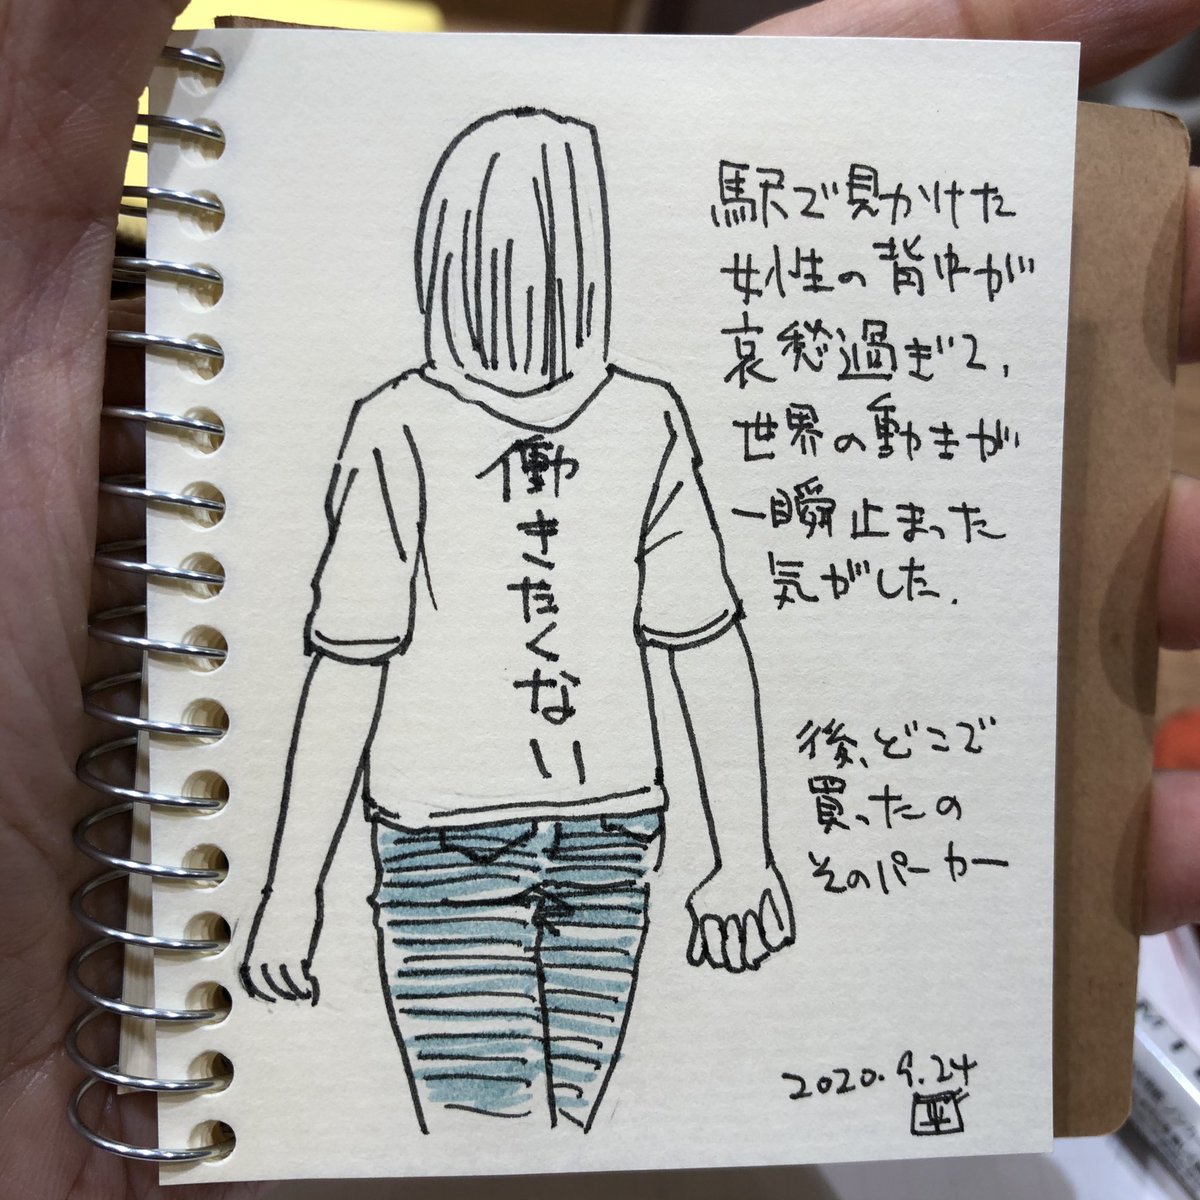 働きたくない
駅で見かけた
女性の背中が
哀愁過ぎて、
世界の動きが
一瞬止まった
気がした.
後、どこで
買ったの
そのパーカー
2020.9.24